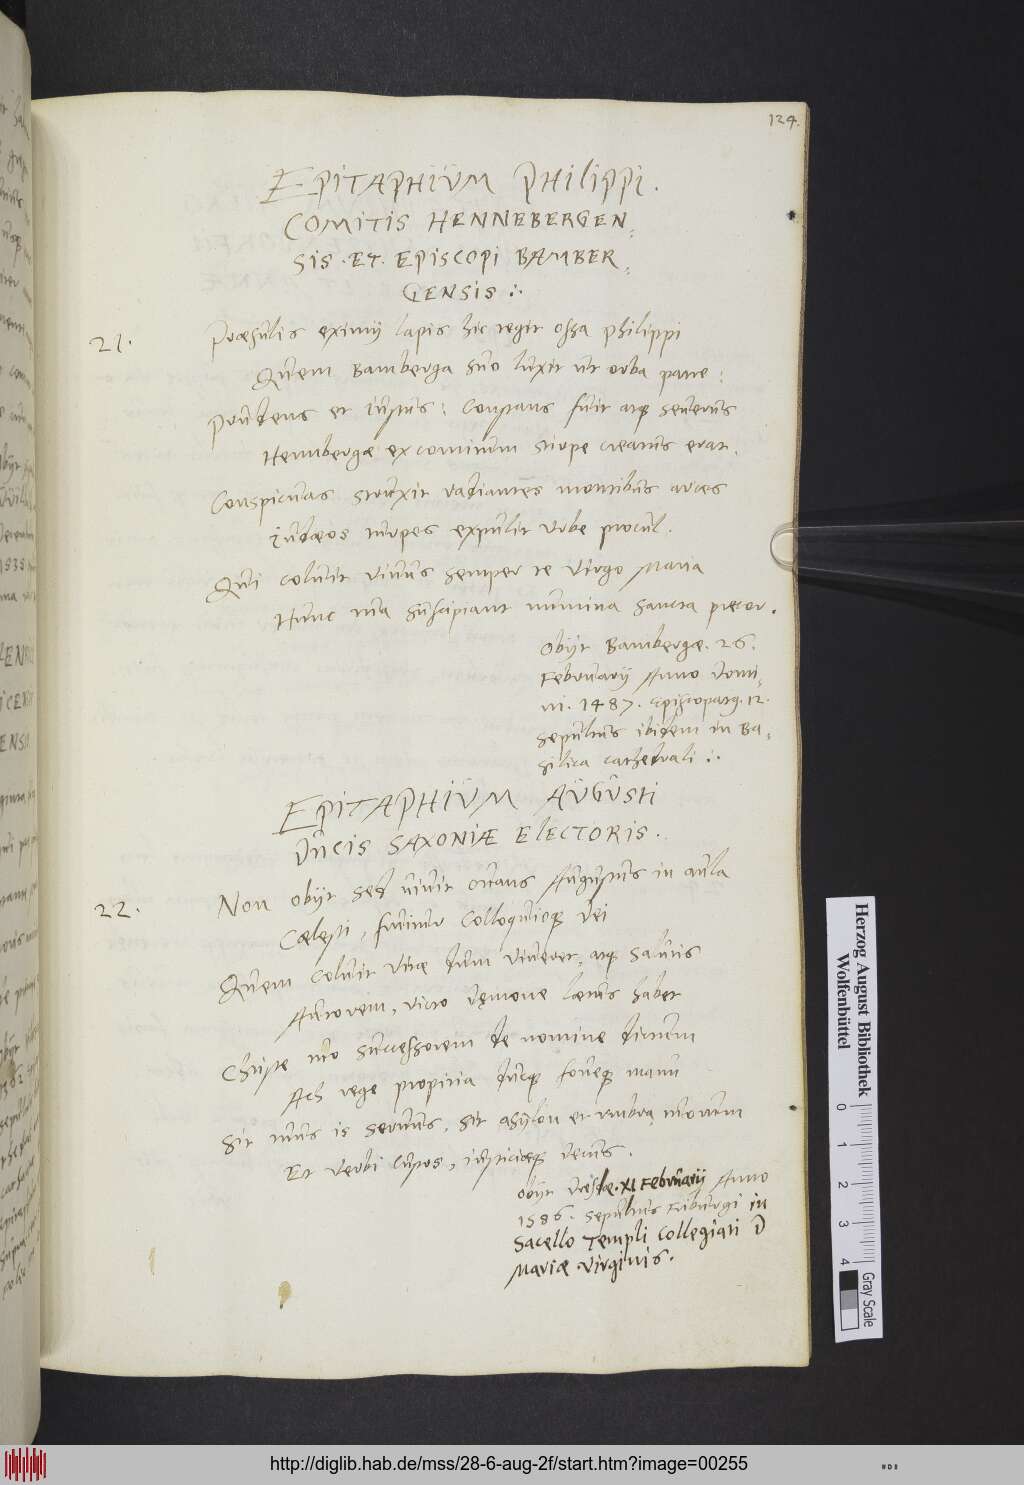 124.
EPITAPHIUM PHILIPPI.
COMITIS HENNEBERGEN=
SIS. ET. EPISCOPI BAMBER=
GENSIS ∴
21.
Præsulis eximij lapis hic tegit ossa Philippi
Quem Bamberga suo luxit ut orba patre:
Prudens et iustus: Constans fuit atq seuerus
Hennbergæ ex comitum stirpe creatus erat.
Conspicuas struxit radiantes montibus arces
Iudæos turpes expulit urbe procul.
Qui coluit viuus semper te virgo Maria
Hunc tua suscipiant numina sancta precor.
Obijt Bambergæ. 26.
Februarij Anno Domi=
ni. 1487. Episcopatq. 12.
Sepultus ibidem in Ba=
silica cathedrali ∴
EPITAPHIUM AUGUSTI
DUCIS SAXONIÆ ELECTORIS.
22.
Non obijt sed uiuit ouans Augustus in aula
Cælesti, fruitur Colloquioq Dei
Quem Coluit vitæ dum viueret, atq salutis
Autorem, victo dęmone lætus habet
Christe tuo successorem de nomine dictum
Ach rege propitia ducq foueq manu
Sit tuus is seruus, sit asylon et umbra tuorum
Et verbi custos, iustitiæq decus.
Obijt Dresdæ. XI Februarij Anno
1586. Sepultus Friburgi in
Sacello Templi Collegiati D
Mariæ Virginis.
Herzog August Bibliothek
Wolfenbüttel
0 1 2 3 4
Gray Scale
http://diglib.hab.de/mss/28-6-aug-2f/start.htm?image=00255